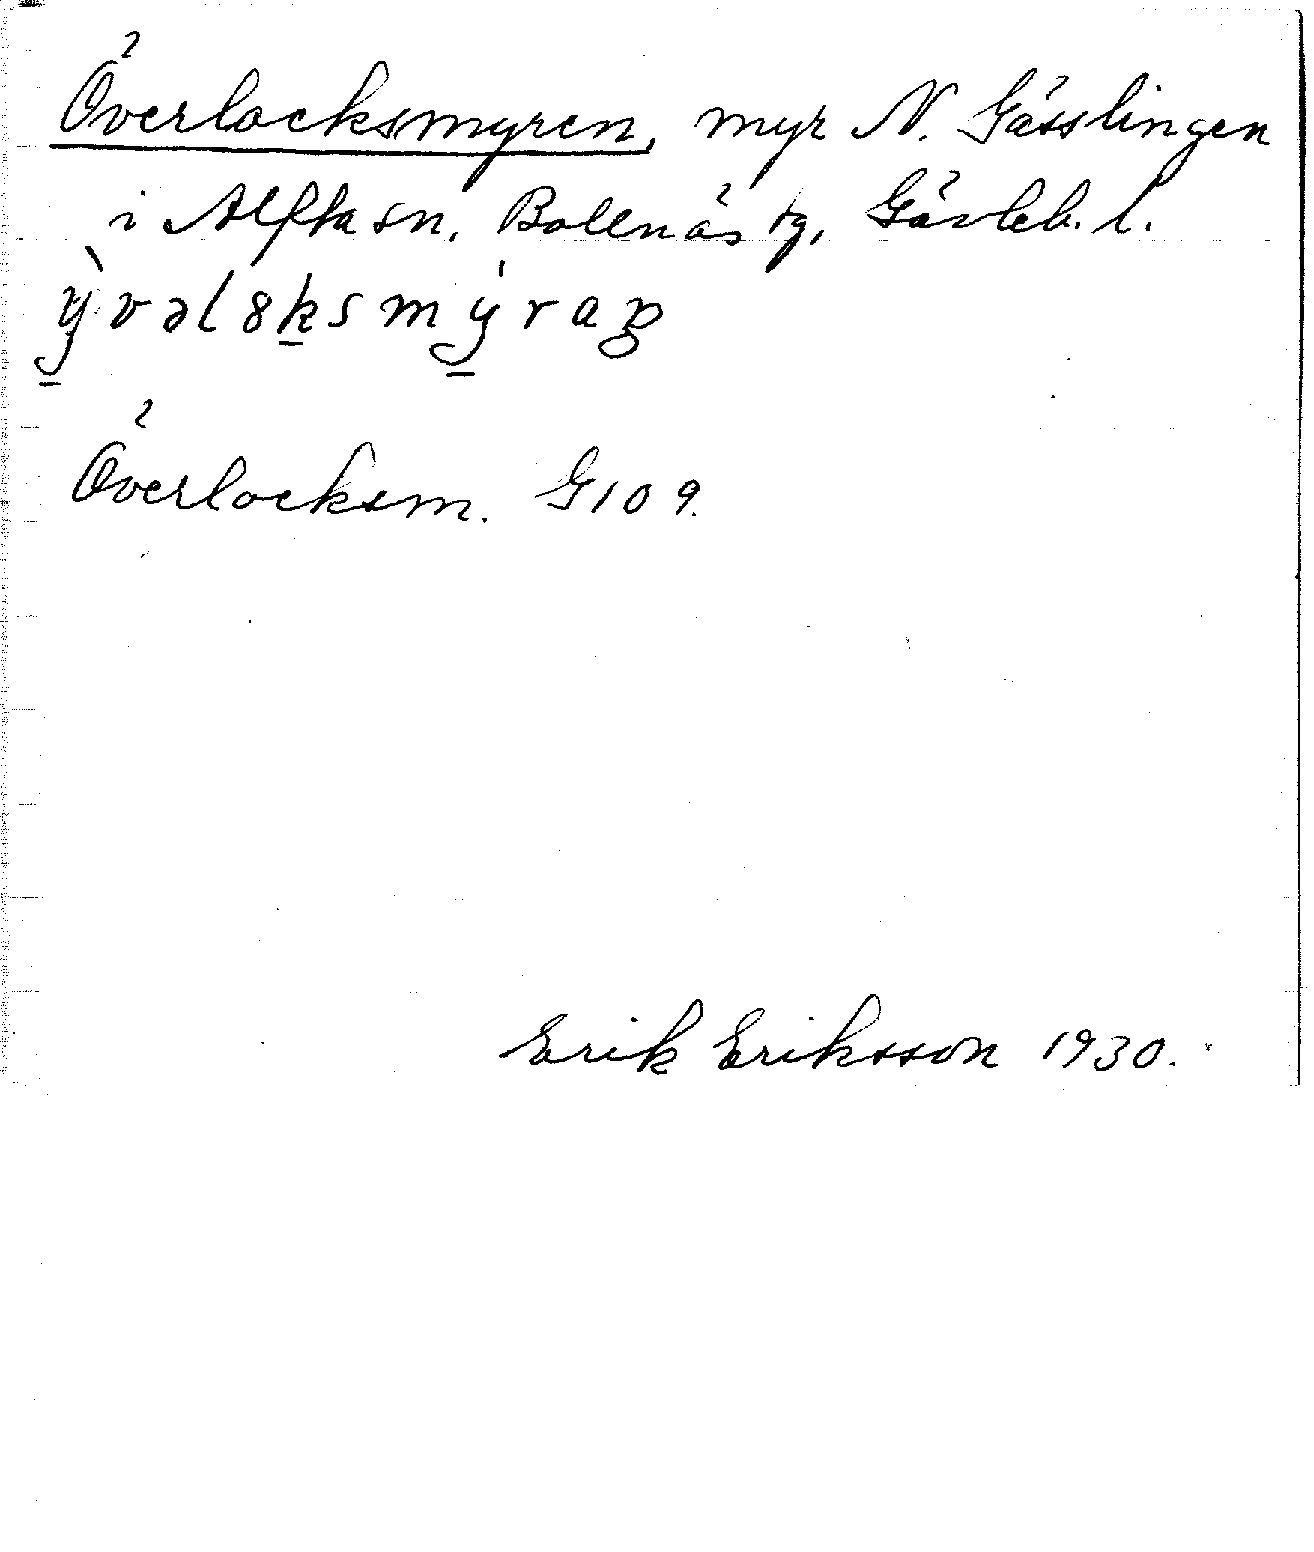 Överlocksmyren, myr N. Gässlingen
i Alfta sn, Bollnäs tg, Gävleb. l.
Överlocksm. G 109.
Erik Eriksson 1930.